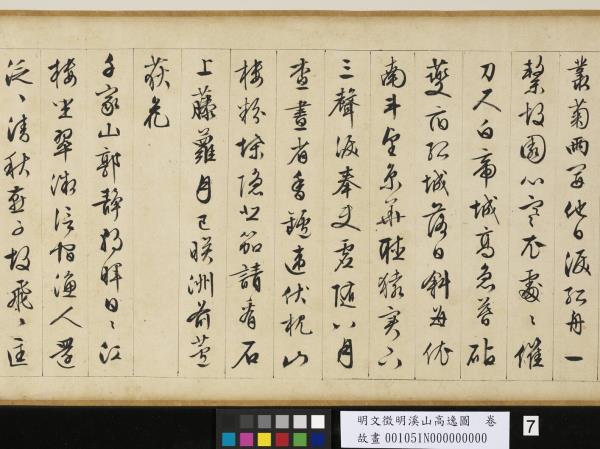 叢菊兩開他日淚孤舟一
繫故園心寒衣處〻催
刀尺白帝城高急暮砧
夔府孤城落日斜每依
南斗望京華聽猿實下
三聲淚奉使虛隨八月
查畫省香罏違伏枕山
樓粉堞隱悲笳請看石
上藤蘿月已映洲前蘆
荻花
千家山郭靜朝暉日〻江
樓坐翠微信宿漁人還
泛〻清秋燕子故飛〻匡
明文徵明溪山高逸圖 卷
故畫 001051N000000000
7